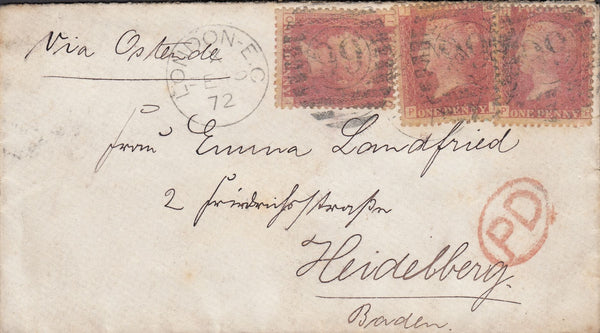 Via Ostende
LONDON-E.C
72
99
ONE PENNY
ONE PENNY
Frau Emma Landfried
2 Friedrichsstraße
PD
Heidelberg.
Baden.